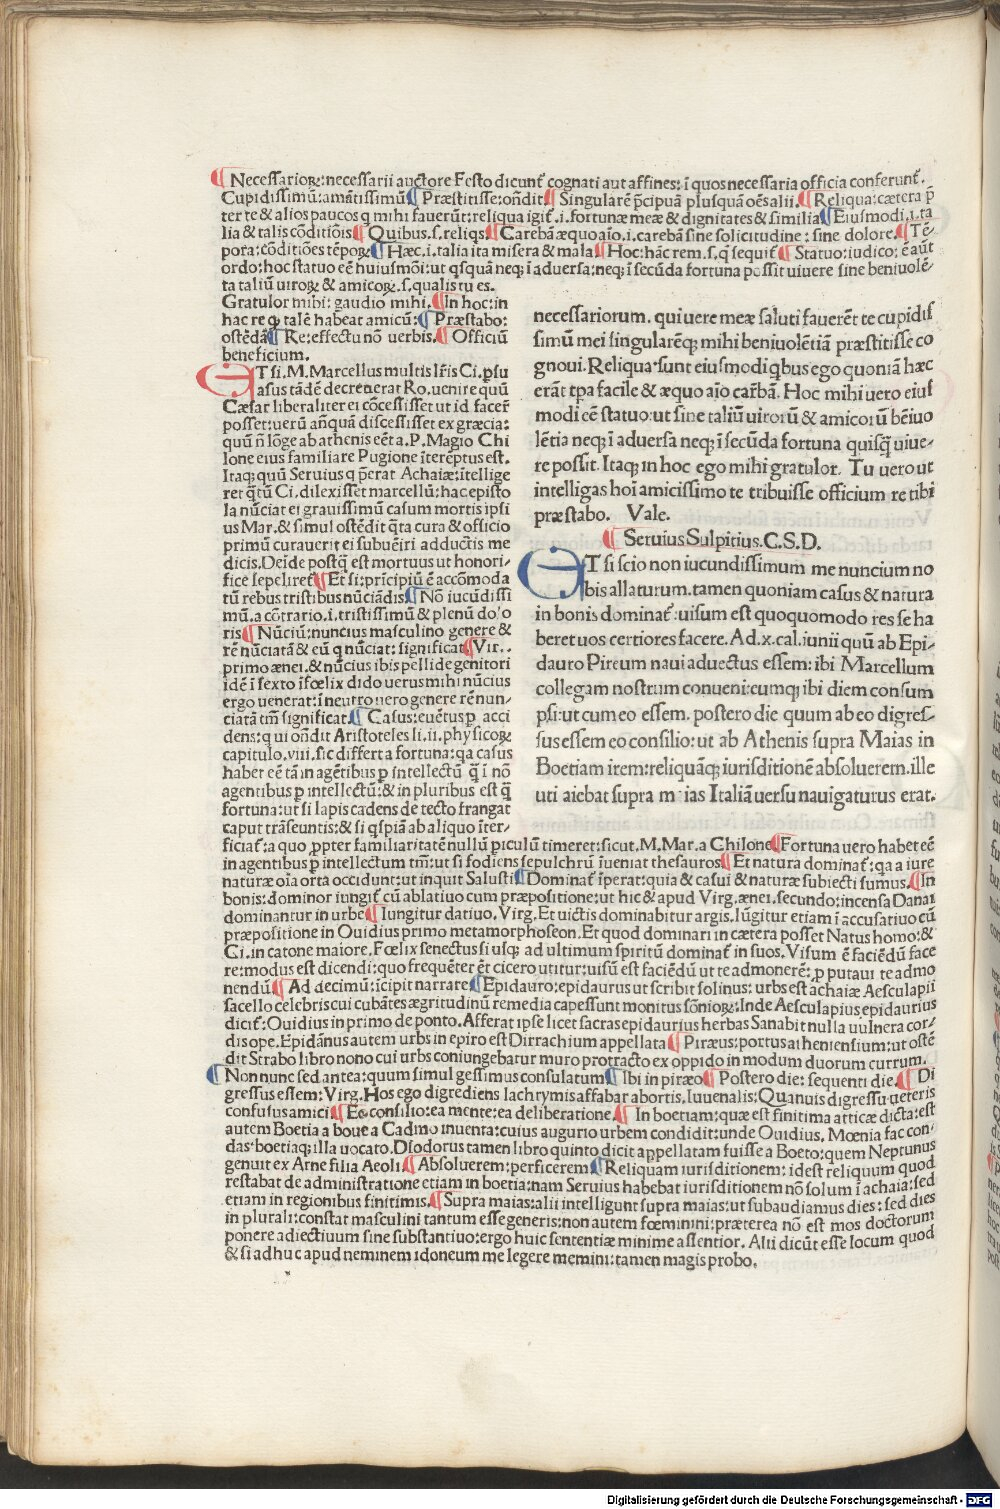 ¶ Necessarioꝝ: necessarii auctore Festo dicunt̃ cognati aut affines: ĩ quos necessaria officia conferunt̃.
Cupidissimũ: amãtissimũ ¶ Præstitisse: oñdit ¶ Singularẽ p̃cipuã plusquã oẽs alii. ¶ Reliqua: cætera p̃
ter te & alios paucos q mihi fauerũt: reliqua igit̃ .i. fortunæ meæ & dignitates & similia ¶ Eiusmodi .i. ta
lia & talis cõditiõis ¶ Quibus .s. reliqs ¶ Carebã æquo aĩo .i. carebã sine solicitudine: sine dolore. ¶ Tẽ-
pora: cõditiões tẽpoꝝ ¶ Hæc .i. talia ita misera & mala ¶ Hoc: hãc rem .s. q̃ sequit̃ ¶ Statuo: iudico: ẽ aũt
ordo: hoc statuo eẽ huiusmõi: ut qsquã neqꝫ ĩ aduersa: neqꝫ ĩ secũda fortuna possit uiuere sine beniuolẽ-
ta taliũ uiroꝝ & amicoꝝ .s. qualis tu es.
Gratulor mihi: gaudio mihi. ¶ In hoc: in
hac re qꝫ talẽ habeat amicũ: ¶ Præstabo:
ostẽdã ¶ Re: effectu nõ uerbis. ¶ Officiũ
beneficium.
ET si .M. Marcellus multis lr̃is Ci. p̱su
asus tãdẽ decreuerat Ro. uenire quũ
Cæsar liberaliter ei cõcessisset ut id facer̃
posset: uerũ añquã discessisset ex græcia:
quũ ñ lõge ab athenis eẽt a .P. Magio Chi
lone eius familiare Pugione ĩterẽptus est.
Itaqꝫ quũ Seruius q p̱erat Achaiæ: ĩtellige
ret q̃tũ Ci. dilexisset marcellũ: hac episto
la nũciat ei grauissimũ casum mortis ipsi
us Mar. & simul ostẽdit q̃ta cura & officio
primũ curauerit ei subuẽiri adductis me
dicis. Deĩde postq̃ est mortuus ut honori-
fice sepeliret̃ ¶ Et si: p̃icipiũ ẽ accõmoda
tũ rebus tristibus nũciãdis ¶ Nõ iucũdissi
mũ. a cõtrario .i. tristissimũ & plenũ dolo
ris ¶ Nũciũ: nuncius masculino genere &
rẽ nũciatã & eũ q nũciat: significat ¶ Vir..
primo ænei. & nũcius ibis pelli de genitori
idẽ ĩ sexto ĩfœlix dido uerus mihi nũcius
ergo uenerat: ĩ neutro uero genere rẽ nun-
ciatã tm̃ significat. ¶ Casus: euẽtus p̱ acci
dens: q ui oñdit Aristoteles li. ii. physicoꝝ
capitulo .viii. sic differt a fortuna: qa casus
habet eẽ tã ĩn agẽtibus p̱ intellectũ q̃ ĩ nõ
agentibus p̱ intellectũ: & in pluribus est q̃
fortuna: ut si lapis cadens de tecto frangat
caput trãseuntis: & si qspiã ab aliquo ĩter-
ficiat̃: a quo p̱pter familiaritatẽ nullũ p̱iculũ timeret: sicut .M. Mar. a Chilone ¶ Fortuna uero habet eẽ
in agentibus p̱ intellectum tm̃: ut si fodiens sepulchrũ ĩueniat thesauros ¶ Et natura dominat̃: qa a iure
naturæ oĩa orta occidunt: ut inquit Salusti ¶ Dominat̃ ĩperat: quia & casui & naturæ subiecti sumus. ¶ In
bonis: dominor iungit̃ cũ ablatiuo cum præpositione: ut hic & apud Virg. ænei. secundo: incensa Danai
dominantur in urbe ¶ Iungitur datiuo. Virg. Et uictis dominabitur argis. Iũgitur etiam ĩ accusatiuo cũ
præpositione in Ouidius primo metamorphoseon. Et quod dominari in cætera posset Natus homo: &
Ci. in catone maiore. Fœlix senectus si usqꝫ ad ultimum spiritũ dominat̃ in suos. Visum ẽ faciẽdũ face
re: modus est dicendi: quo frequẽter ẽt cicero utitur: uisũ est faciẽdũ ut te admonerẽ: p̱ putaui te admo
nendũ. ¶ Ad decimũ: ĩcipit narrare ¶ Epidauro: epidaurus ut scribit solinus: urbs est achaiæ Aesculapii
sacello celebris cui cubãtes ægritudinũ remedia capessunt monitus sõnioꝝ: Inde Aesculapius epidaurius
dicit̃: Ouidius in primo de ponto. Afferat ipse licet sacras epidaurius herbas Sanabit nulla uulnera cor-
dis ope. Epidãnus autem urbs in epiro est Dirrachium appellata ¶ Piræus: portus atheniensium: ut ostẽ
dit Strabo libro nono cui urbs coniungebatur muro protracto ex oppido in modum duorum currum.
¶ Non nunc sed antea: quum simul gessimus consulatum ¶ Ibi in piræo ¶ Postero die: sequenti die. ¶ Di
gressus essem: Virg. Hos ego digrediens lachrymis affabar abortis. Iuuenalis: Quanuis digressu ueteris
confusus amici ¶ Eo consilio: ea mente: ea deliberatione. ¶ In boetiam: quæ est finitima atticæ dicta: est
autem Boetia a boue a Cadmo inuenta: cuius augurio urbem condidit: unde Ouidius. Mœnia fac con-
das: boetiaqꝫ illa uocato. Diodorus tamen libro quinto dicit appellatam fuisse a Boeto: quem Neptunus
genuit ex Arne filia Aeoli. ¶ Absoluerem: perficerem ¶ Reliquam iurisditionem: idest reliquum quod
restabat de administratione etiam in boetia: nam Seruius habebat iurisditionem nõ solum ĩ achaia: sed
etiam in regionibus finitimis. ¶ Supra maias: alii intelligunt supra maias: ut subaudiamus dies: sed dies
in plurali: constat masculini tantum esse generis: non autem fœminini: præterea nõ est mos doctorum
ponere adiectiuum sine substantiuo: ergo huic sententiæ minime assentior. Alii dicũt esse locum quod
& si adhuc apud neminem idoneum me legere memini: tamen magis probo.
necessariorum. qui uere meæ saluti fauerẽt te cupidis
simũ mei singularẽqꝫ mihi beniuolẽtiã præstitisse co
gnoui. Reliqua sunt eiusmodi qbus ego quoniã hæc
erãt tp̃a facile & æquo aĩo carbã. Hoc mihi uero eius
modi eẽ statuo: ut sine taliũ uirorũ & amicorũ bẽiuo
lẽtia neqꝫ ĩ aduersa neqꝫ ĩ secũda fortuna quisq̃ uiue-
re possit. Itaqꝫ in hoc ego mihi gratulor. Tu uero ut
intelligas hoĩ amicissimo te tribuisse officium re tibi
præstabo. Vale.
¶ Seruius Sulpitius .C.S.D.
ET si scio non iucundissimum me nuncium uo
bis allaturum. tamen quoniam casus & natura
in bonis dominat̃: uisum est quoquomodo res se ha
beret uos certiores facere. Ad .x. cal. iunii quũ ab Epi-
dauro Pireum naui aduectus essem: ibi Marcellum
collegam nostrum conueni: cumqꝫ ibi diem consum
psi: ut cum eo essem. postero die quum ab eo digres-
sus essem eo consilio: ut ab Athenis supra Maias in
Boetiam irem: reliquãqꝫ iurisditionẽ absoluerem. ille
uti aiebat supra maias Italiã uersu nauigaturus erat.
Digitalisierung gefördert durch die Deutsche Forschungsgemeinschaft - DFG